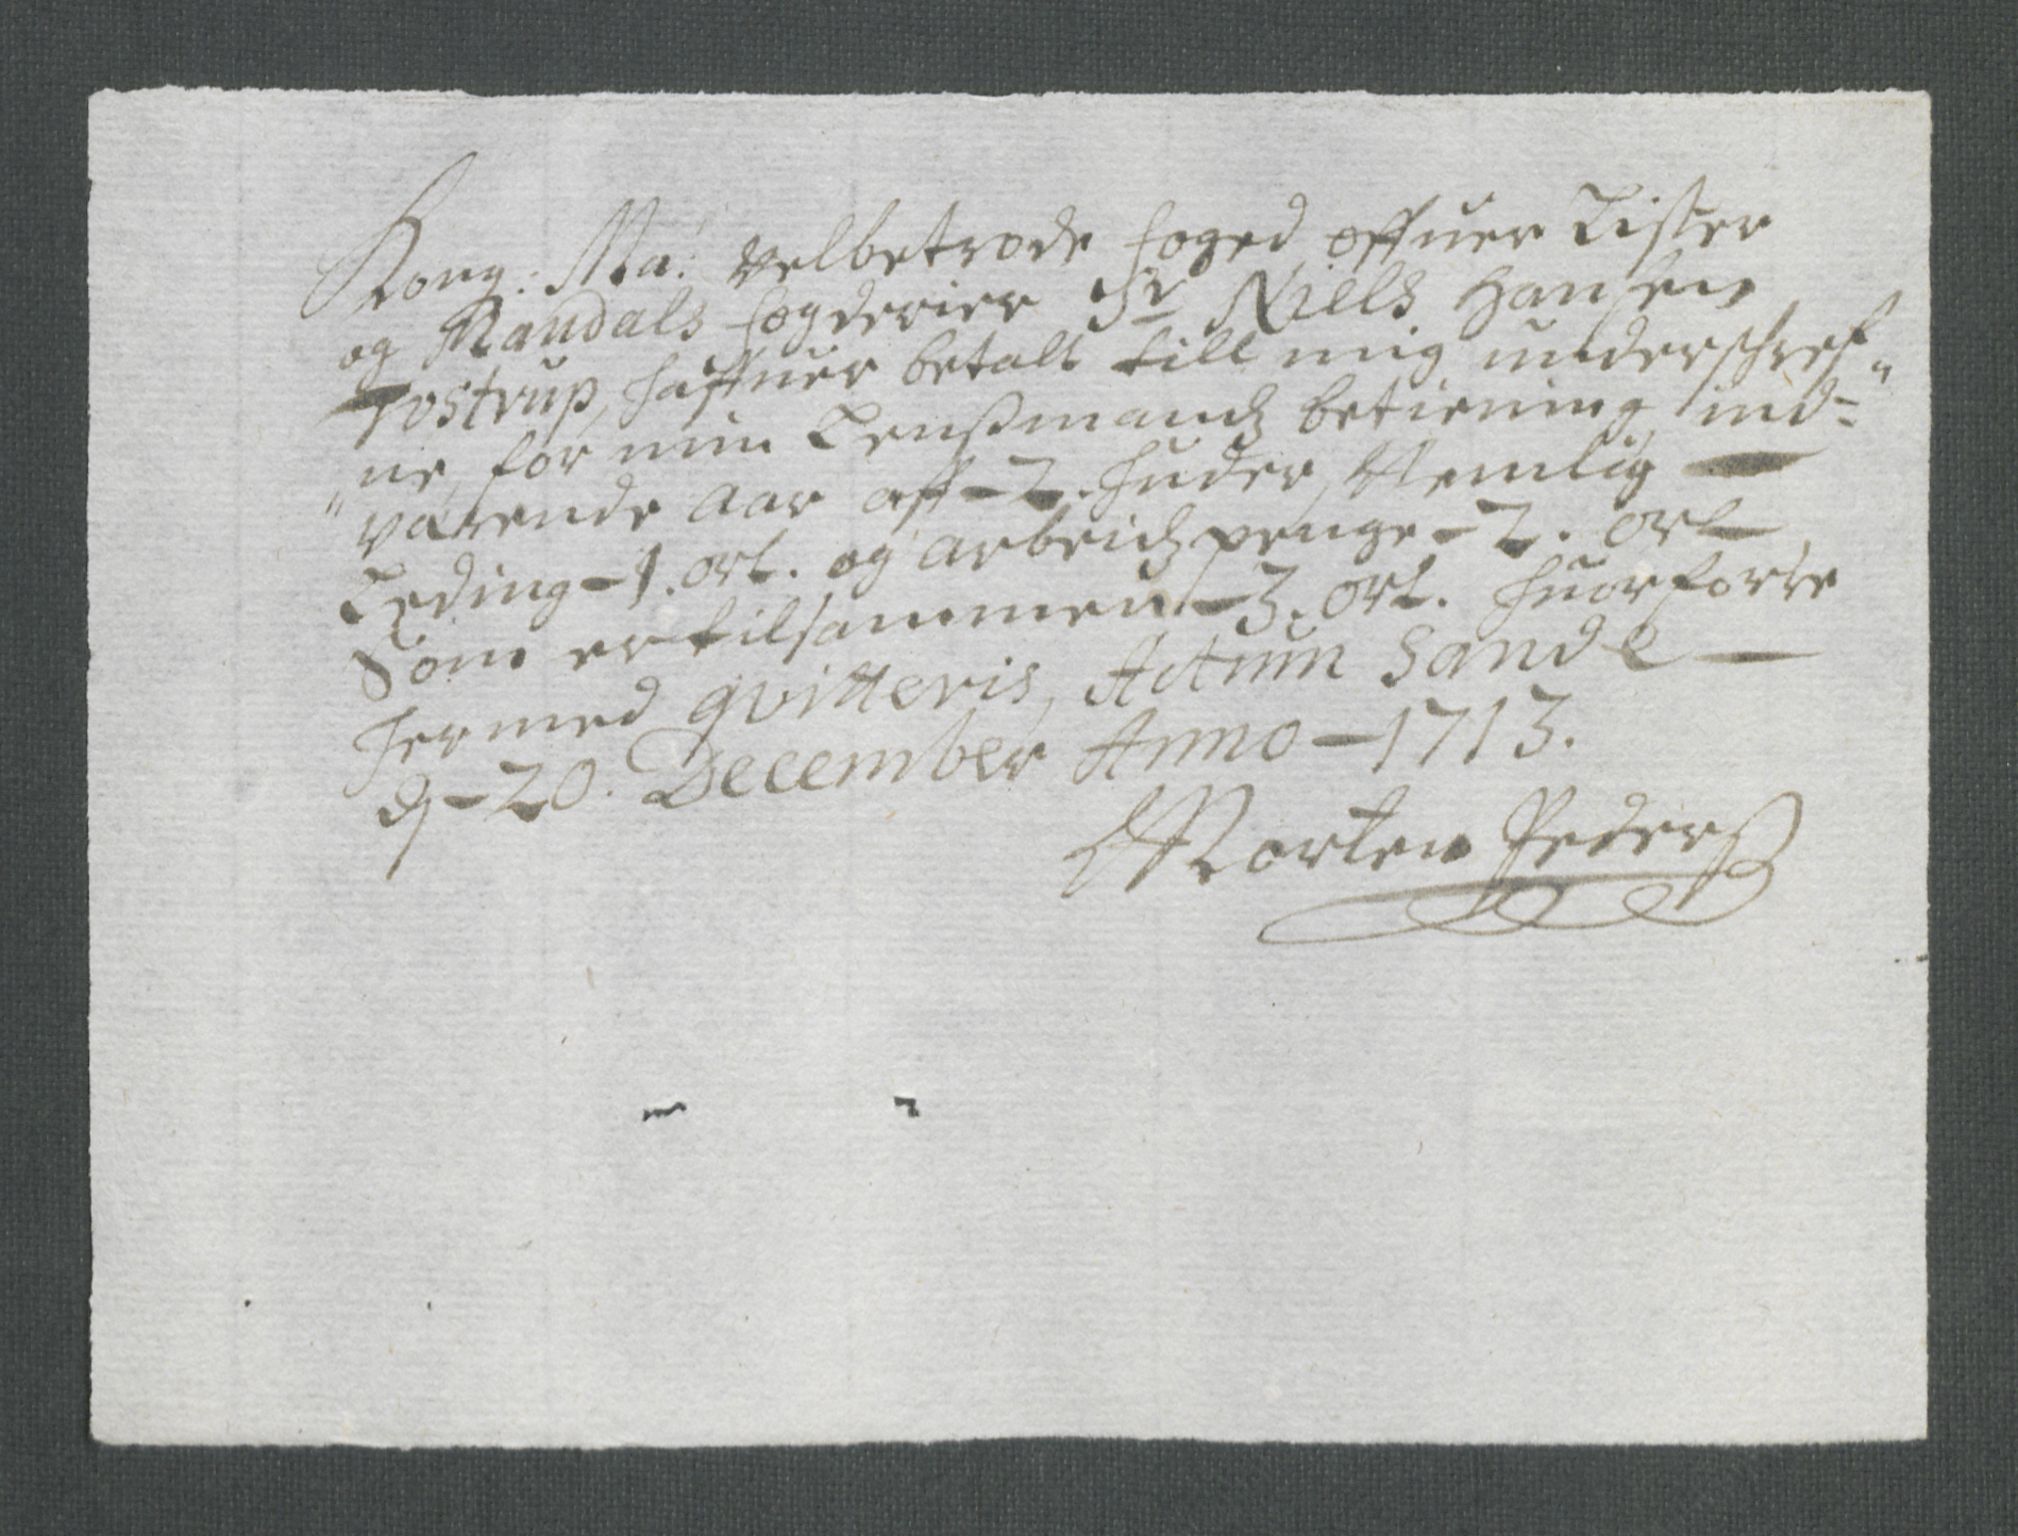 Kong: Ma: Velbetrode foged offuer Lister
og Mandals fogderier Sr Niels Hansen
Tostrup, haffuer betalt till mig underschref„
„ne, for min Lenßmandz betiening ind=
varende aar aff – 2. huder, Nemlig –
Leding – 1. ort. og arbeidz penge – 2. ort –
Som er tilsammen – 3. ort. huorforre
hermed qvitteris, Actum Sande –
dj – 20. December Anno – 1713.
Morten Pederß